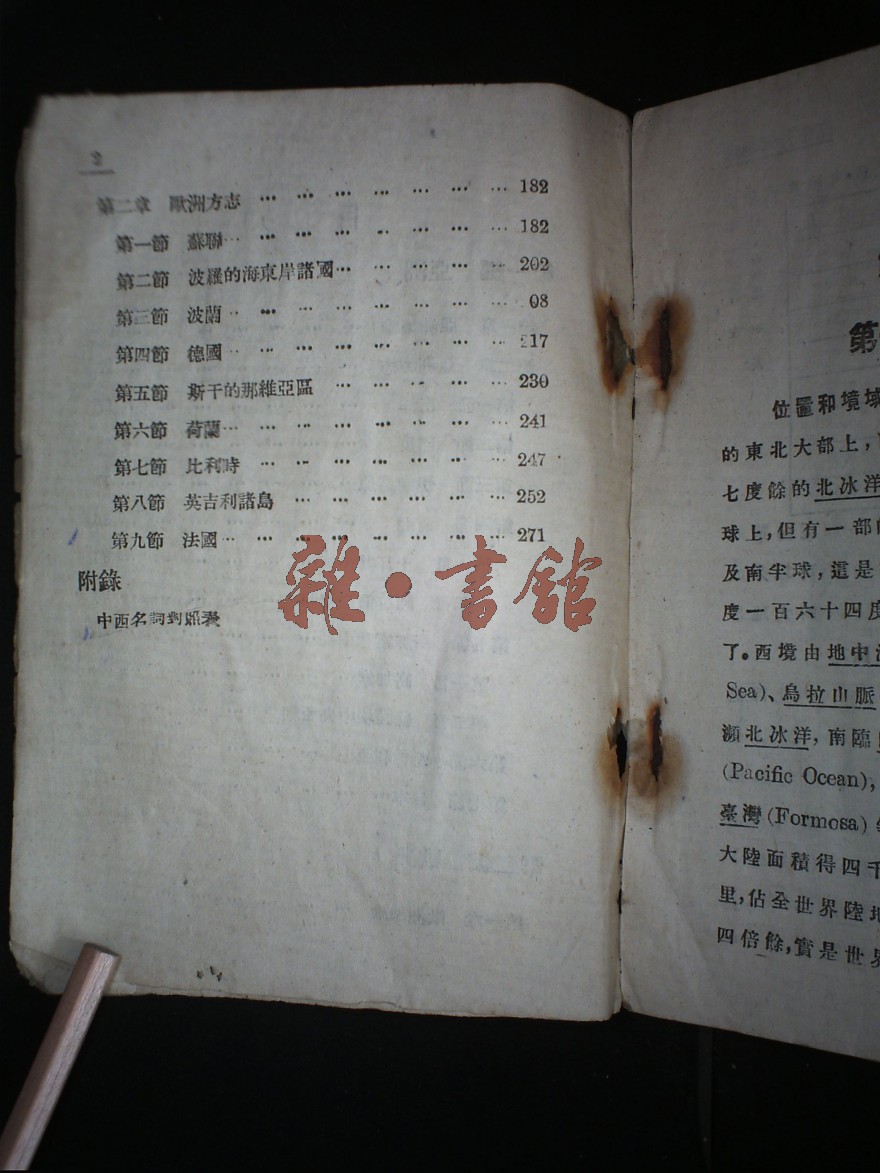 2
第二章 歐洲方志 … … … … … … … 182
第一節 蘇聯… … … … … … … … 182
第二節 波羅的海東岸諸國… … … … … 202
第三節 波蘭… … … … … … … … 08
第四節 德國… … … … … … … … 217
第五節 斯干的那維亞區 … … … … … 230
第六節 荷蘭… … … … … … … … 241
第七節 比利時 … … … … … … … 247
第八節 英吉利諸島 … … … … … … 252
第九節 法國… … … … … … … … 271
附錄
中西名詞對照表
雜·書館
第
位置和境域
的東北大部上,
七度餘的北冰洋
球上,但有一部
及南半球,這是
度一百六十四度
了。西境由地中
Sea)、烏拉山脈
瀕北冰洋,南臨
(Pacific Ocean),
臺灣(Formosa)
大陸面積得四千
里,佔全世界陸地
四倍餘,實是世界